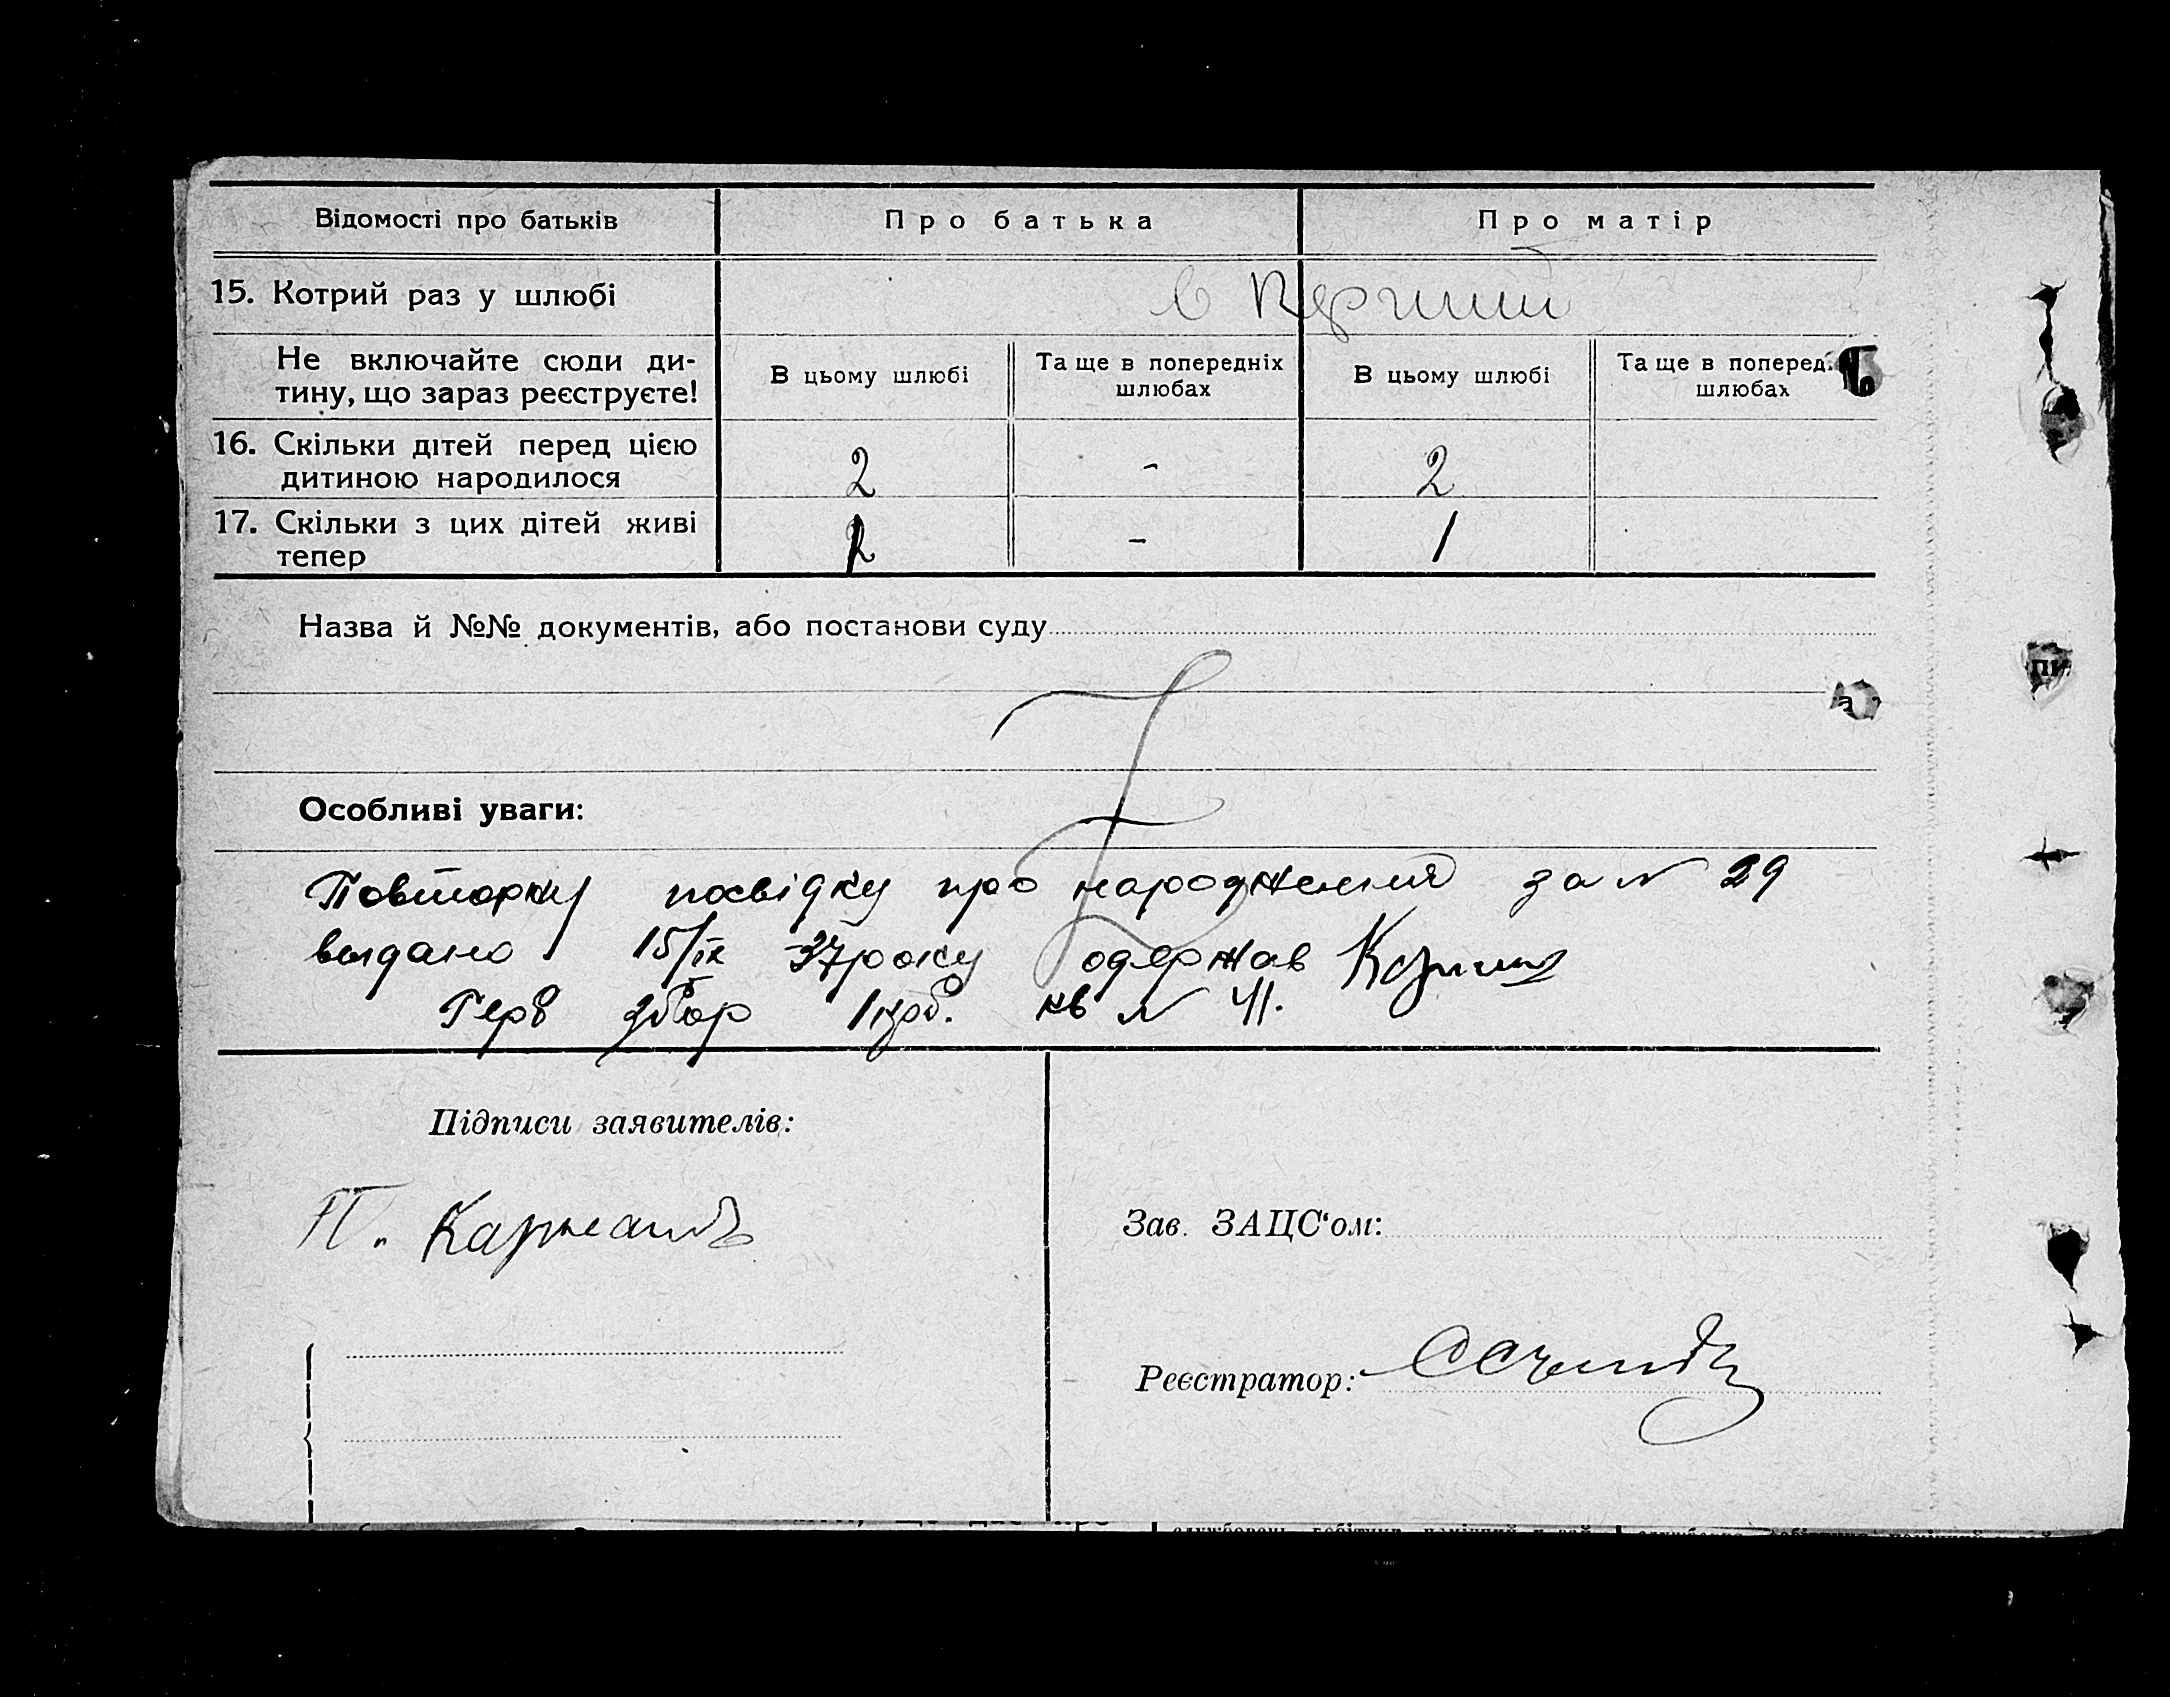 Відомості про батьків Про батька Про матір
15. Котрий раз у шлюбі в первий
Не включайте сюди ди-
тину, що зараз реєструєте!
В цьому шлюбі Та ще в попередніх
шлюбах
В цьому шлюбі Та ще в поперед
шлюбах
16. Скільки дітей перед цією
дитиною народилося 2 - 2
17. Скільки з цих дітей живі
тепер 1 - 1
Назва й №№ документів, або постанови суду
Особливі уваги:
Повторну посвідку про народження за № 29
выдано 15/IX 37 року одержав
Герб збор 1 крб. кв № 41.
Підписи заявителів:
П.
Зав. ЗАЦС‘ом:
Реєстратор: